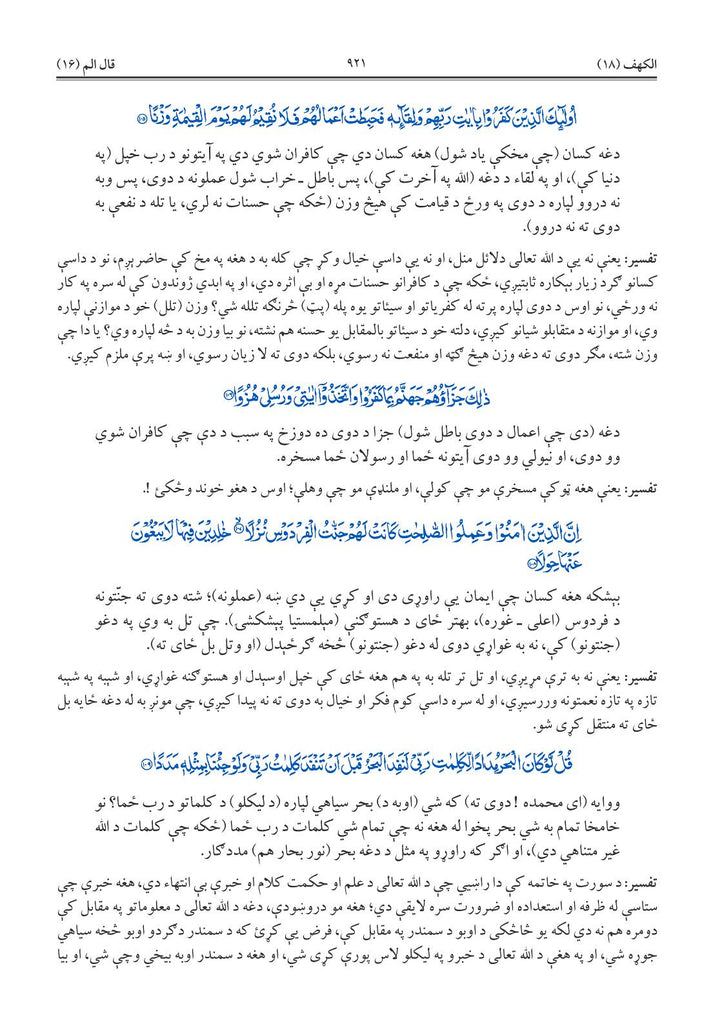 الکهف (۱۸) ۹۲۱ قال الم (۱۶)
اُولٰٓئِكَ الَّذِيْنَ كَفَرُوْا بِاٰيٰتِ رَبِّهِمْ وَلِقَآئِهٖ فَحَبِطَتْ اَعْمَالُهُمْ فَلَا نُقِيْمُ لَهُمْ يَوْمَ الْقِيٰمَةِ وَزْنًا ۱۰۵
دغه کسان (چې مخکې ياد شول) هغه کسان دي چې کافران شوي دي په آيتونو د رب خپل (په
دنيا کې)، او په لقاء د دغه (الله په آخرت کې)، پس باطل ـ خراب شول عملونه د دوی، پس وبه
نه دروو لپاره د دوی په ورځ د قيامت کې هيڅ وزن (ځکه چې حسنات نه لري، يا تله د نفعې به
دوی ته نه دروو).
تفسير: يعنې نه يې د الله تعالی دلائل منل، او نه يې داسې خيال وکړ چې کله به د هغه په مخ کې حاضرېږم، نو د داسې
کسانو ګرد زيار بېکاره ثابتيږي، ځکه چې د کافرانو حسنات مړه او بې اثره دي، او په ابدي ژوندون کې له سره په کار
نه ورځي، نو اوس د دوی لپاره پرته له کفرياتو او سيئاتو يوه پله (پټ) څرنګه تلله شي؟ وزن (تلل) خو د موازنې لپاره
وي، او موازنه د متقابلو شيانو کيږي، دلته خو د سيئاتو بالمقابل يو حسنه هم نشته، نو بيا وزن به د څه لپاره وي؟ يا دا چې
وزن شته، مګر دوی ته دغه وزن هيڅ ګټه او منفعت نه رسوي، بلکه دوی ته لا زيان رسوي، او ښه پرې ملزم کيږي.
ذٰلِكَ جَزَآؤُهُمْ جَهَنَّمُ بِمَا كَفَرُوْا وَاتَّخَذُوْٓا اٰيٰتِيْ وَرُسُلِيْ هُزُوًا ۱۰۶
دغه (دی چې اعمال د دوی باطل شول) جزا د دوی ده دوزخ په سبب د دې چې کافران شوي
وو دوی، او نيولي وو دوی آيتونه ځما او رسولان ځما مسخره.
تفسير: يعنې هغه ټوکې مسخرې مو چې کولې، او ملنډې مو چې وهلې؛ اوس د هغو خوند وڅکئ !.
اِنَّ الَّذِيْنَ اٰمَنُوْا وَعَمِلُوا الصّٰلِحٰتِ كَانَتْ لَهُمْ جَنّٰتُ الْفِرْدَوْسِ نُزُلًا ۱۰۷ خٰلِدِيْنَ فِيْهَا لَا يَبْغُوْنَ
عَنْهَا حِوَلًا ۱۰۸
بېشکه هغه کسان چې ايمان يې راوړی دی او کړي يې دي ښه (عملونه)؛ شته دوی ته جنّتونه
د فردوس (اعلی ـ غوره)، بهتر ځای د هستوګنې (مېلمستيا پېشکشی). چې تل به وي په دغو
(جنتونو) کې، نه به غواړي دوی له دغو (جنتونو) څخه ګرځېدل (او وتل بل ځای ته).
تفسير: يعنې نه به ترې مړيږي، او تل تر تله به په هم هغه ځای کې خپل اوسېدل او هستوګنه غواړي، او شېبه په شېبه
تازه په تازه نعمتونه وررسيږي، او له سره داسې کوم فکر او خيال به دوی ته نه پيدا کيږي، چې مونږ به له دغه ځايه بل
ځای ته منتقل کړی شو.
قُلْ لَّوْ كَانَ الْبَحْرُ مِدَادًا لِّكَلِمٰتِ رَبِّيْ لَنَفِدَ الْبَحْرُ قَبْلَ اَنْ تَنْفَدَ كَلِمٰتُ رَبِّيْ وَلَوْ جِئْنَا بِمِثْلِهٖ مَدَدًا ۱۰۹
ووايه (ای محمده ! دوی ته) که شي (اوبه د) بحر سياهي لپاره (د ليکلو) د کلماتو د رب ځما؟ نو
خامخا تمام به شي بحر پخوا له هغه نه چې تمام شي کلمات د رب ځما (ځکه چې کلمات د الله
غير متناهي دي)، او اګر که راوړو په مثل د دغه بحر (نور بحار هم) مددګار.
تفسير: د سورت په خاتمه کې دا راښيي چې د الله تعالی د علم او حکمت کلام او خبرې بې انتهاء دي، هغه خبرې چې
ستاسې له ظرفه او استعداده او ضرورت سره لايقې دي؛ هغه مو دروښودې، دغه د الله تعالی د معلوماتو په مقابل کې
دومره هم نه دي لکه يو څاڅکی د اوبو د سمندر په مقابل کې، فرض يې کړئ که د سمندر دګردو اوبو څخه سياهي
جوړه شي، او په هغې د الله تعالی د خبرو په ليکلو لاس پورې کړی شي، او هغه د سمندر اوبه بيخي وچې شي، او بيا